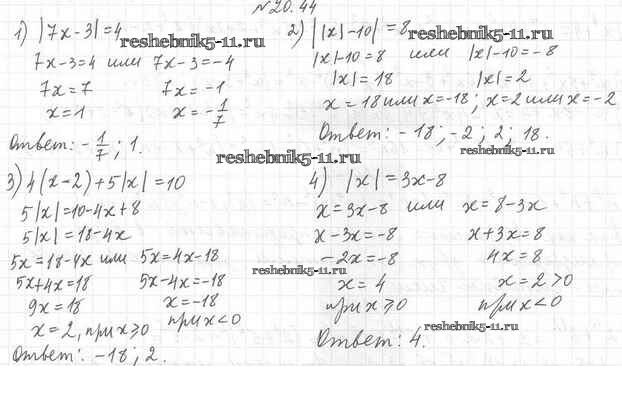 №20.44
1) |7x-3|=4
7x-3=4 или 7x-3=-4
7x=7 7x=-1
x=1 x=-1/7
Ответ: -1/7; 1.
2) ||x|-10|=8
|x|-10=8 или |x|-10=-8
|x|=18 |x|=2
x=18 или x=-18; x=2 или x=-2
Ответ: -18; -2; 2; 18.
3) 4(x-2)+5|x|=10
5|x|=10-4x+8
5|x|=18-4x
5x=18-4x или 5x=4x-18
5x+4x=18 5x-4x=-18
9x=18 x=-18
x=2, при x≥0 при x<0
Ответ: -18; 2.
4) |x|=3x-8
x=3x-8 или x=8-3x
x-3x=-8 x+3x=8
-2x=-8 4x=8
x=4 x=2>0
при x≥0 при x<0
Ответ: 4.
reshebnik5-11.ru
reshebnik5-11.ru
reshebnik5-11.ru
reshebnik5-11.ru
reshebnik5-11.ru
reshebnik5-11.ru